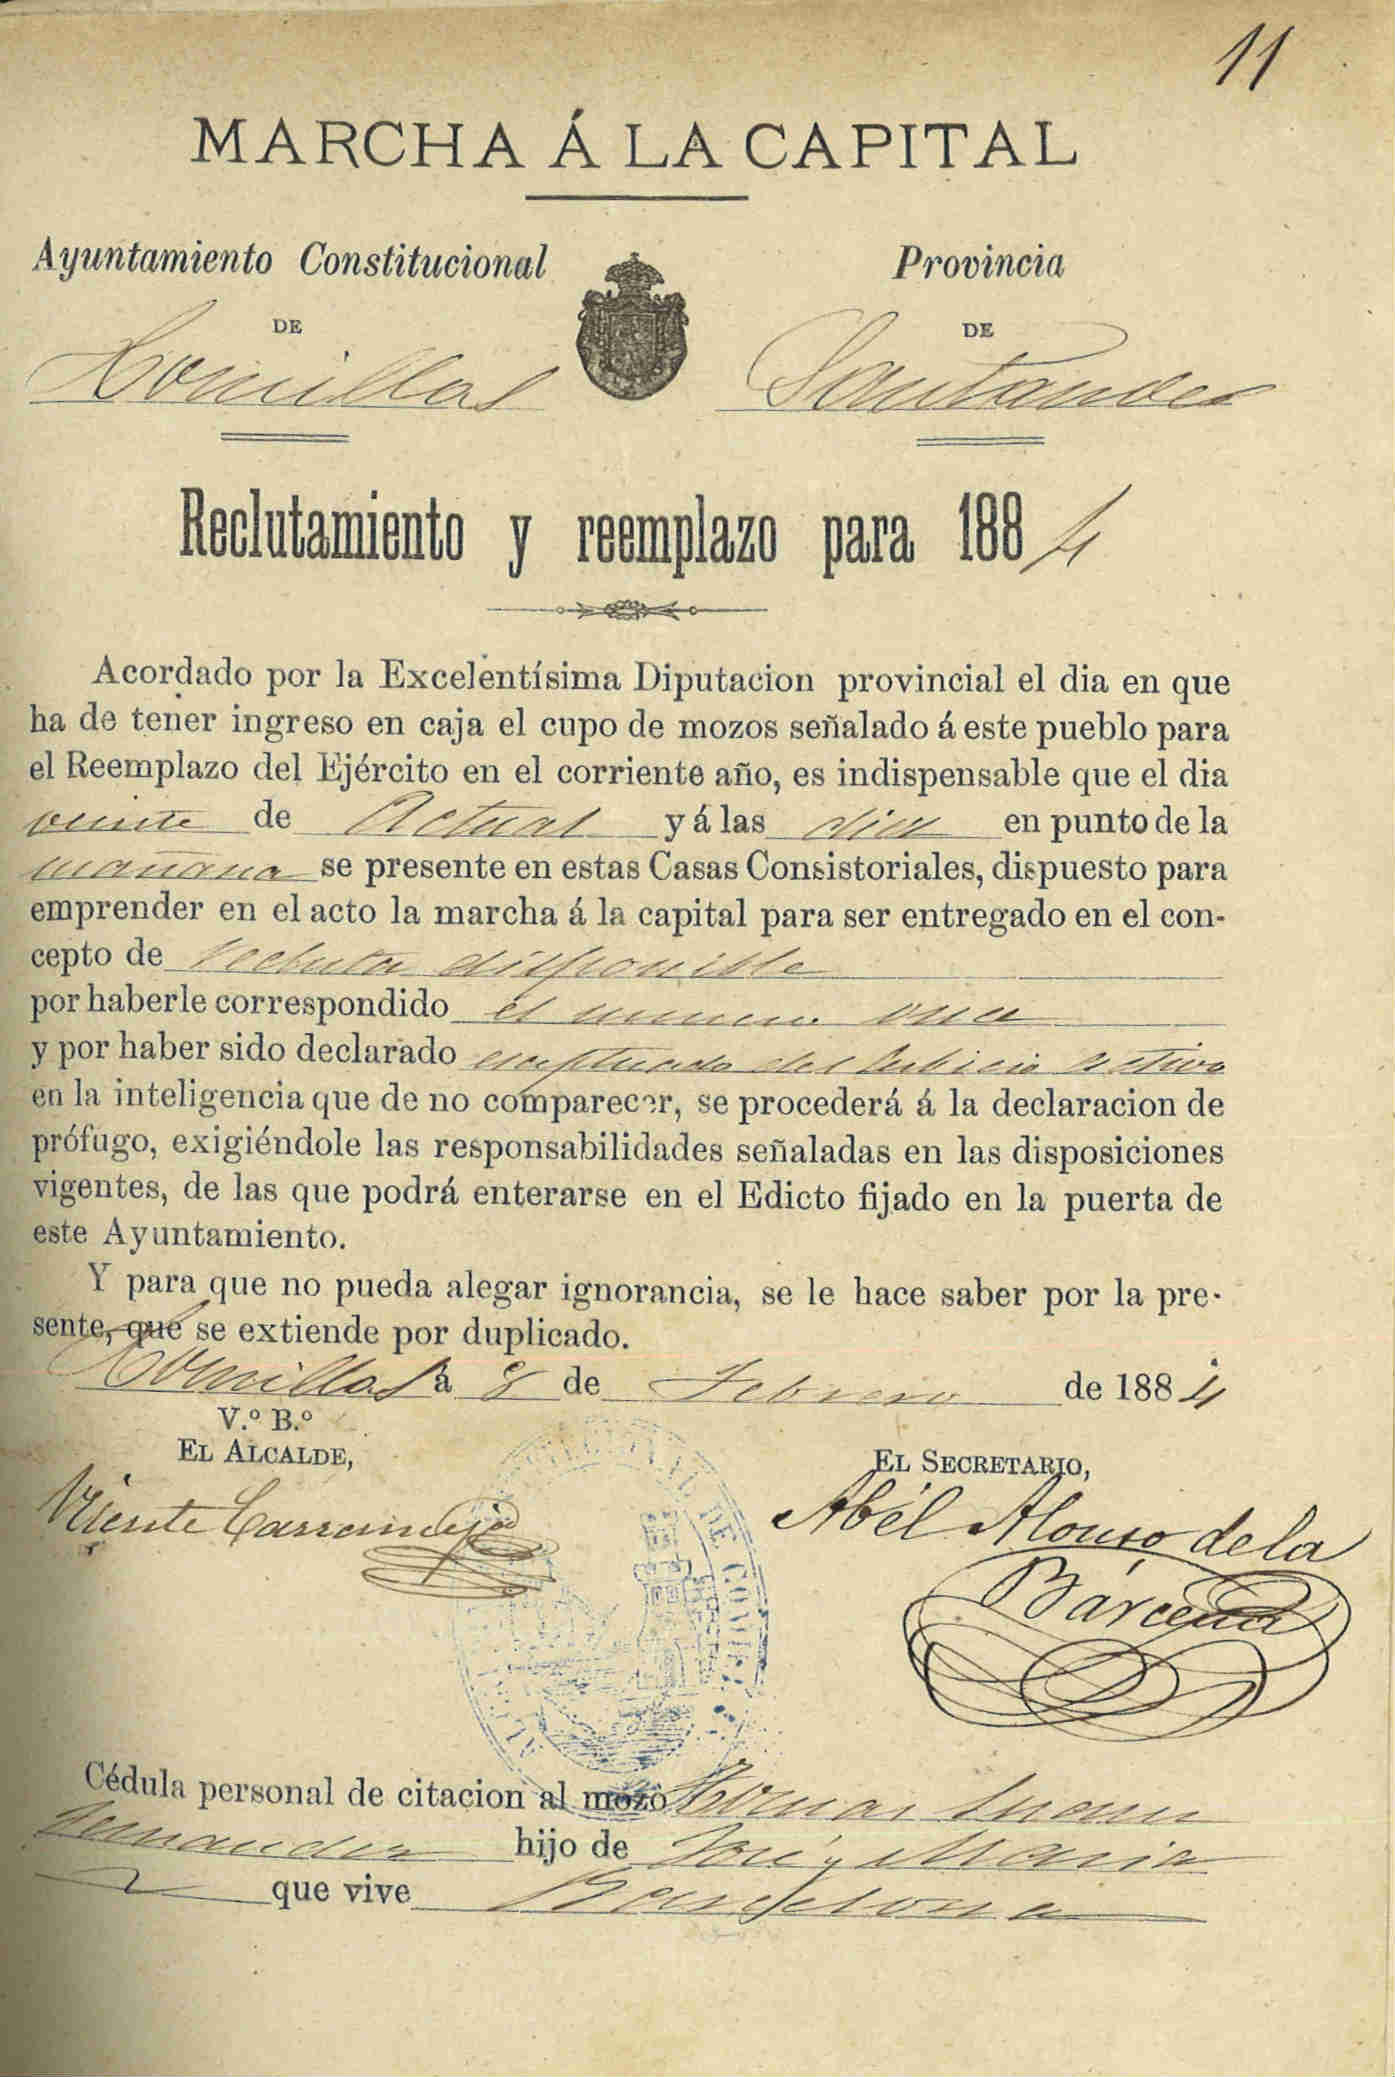 11
MARCHA Á LA CAPITAL
Ayuntamiento Constitucional
DE
Comillas
Provincia
DE
Santander
Reclutamiento y reemplazo para 1884
Acordado por la Excelentísima Diputacion provincial el dia en que
ha de tener ingreso en caja el cupo de mozos señalado á este pueblo para
el Reemplazo del Ejército en el corriente año, es indispensable que el dia
veinte de Actual y á las diez en punto de la
mañana se presente en estas Casas Consistoriales, dispuesto para
emprender en el acto la marcha á la capital para ser entregado en el con-
cepto de recluta disponible
por haberle correspondido el numero once
y por haber sido declarado esceptuado del Servicio activo
en la inteligencia que de no comparecer, se procederá á la declaracion de
prófugo, exigiéndole las responsabilidades señaladas en las disposiciones
vigentes, de las que podrá enterarse en el Edicto fijado en la puerta de
este Ayuntamiento.
Y para que no pueda alegar ignorancia, se le hace saber por la pre-
sente, que se extiende por duplicado.
Comillas á 8 de Febrero de 1884
V.º B.º
EL ALCALDE,
Vicente
EL SECRETARIO,
Abél Alonso de la
Bárcena
DE
Cédula personal de citacion al mozo
Fernandez hijo de José y Maria
que vive Barcelona